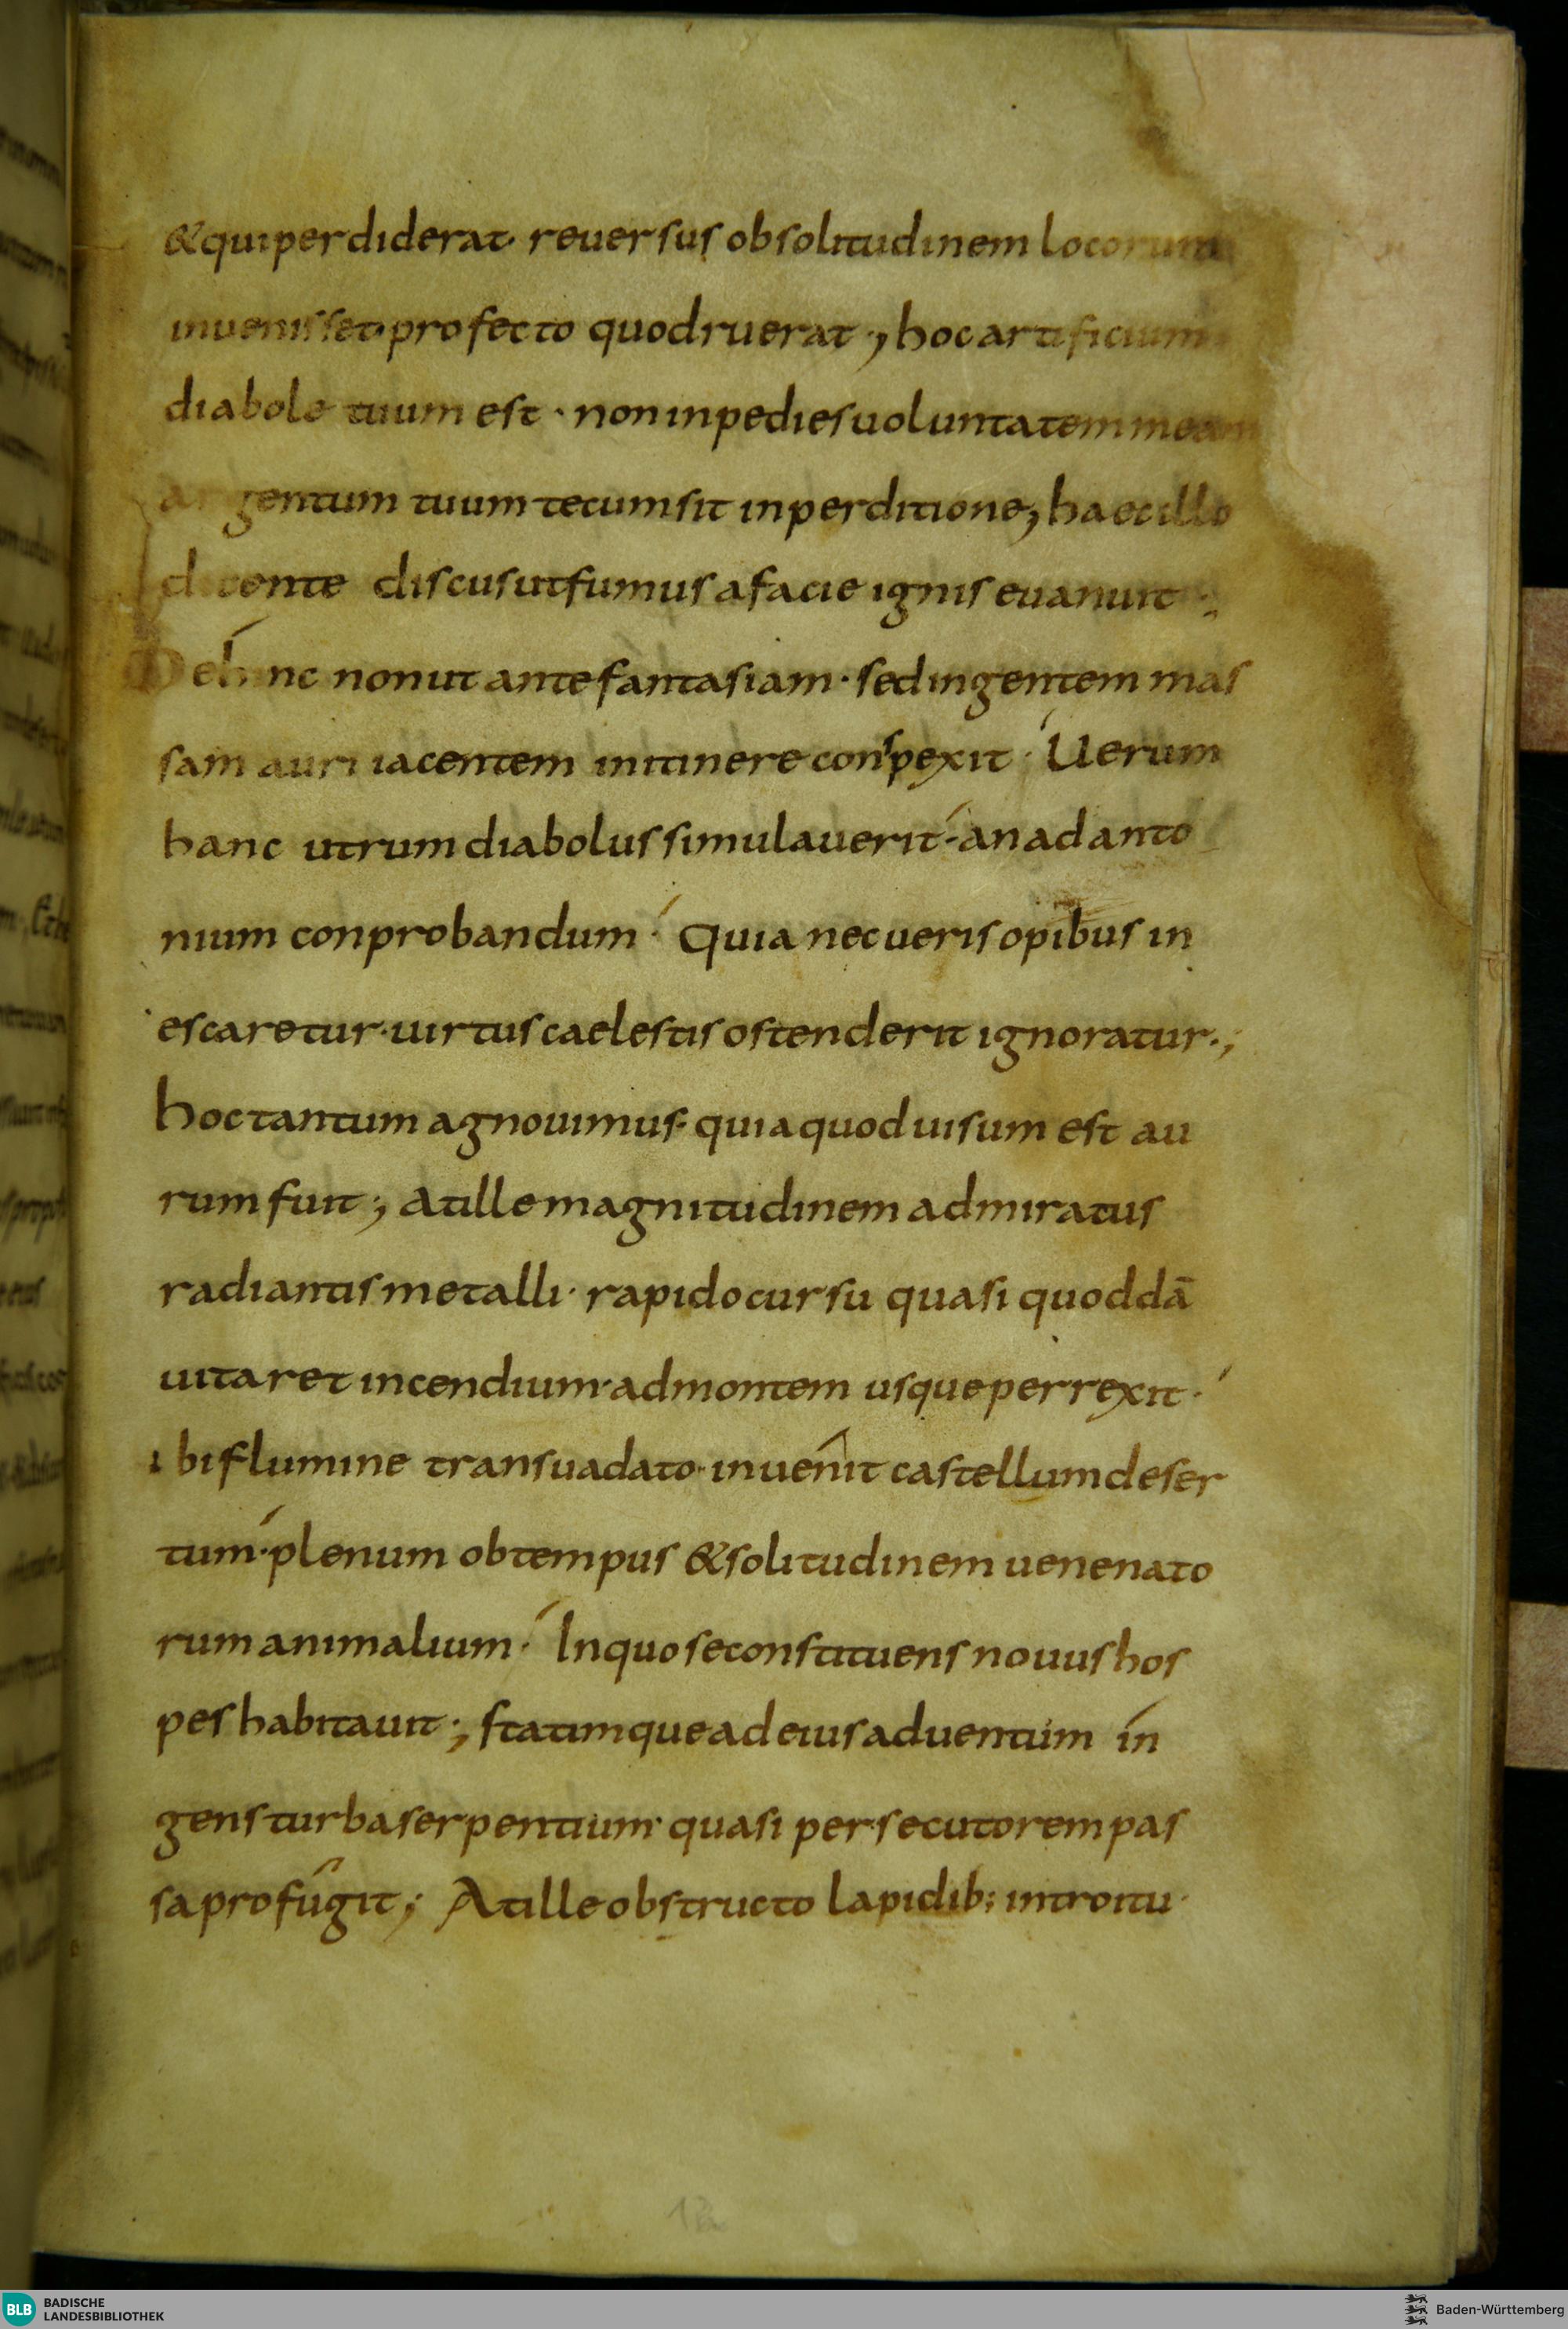 & qui perdiderat· reuersus ob solitudinem locorum
inuenisset· profecto quod ruerat·, hoc artificium
diabole tuum est· non inpedies uoluntatem meam
argentum tuum tecum sit in perditione, haec illo
dicente discus ut fumus a facie ignis euanuit·,
Dehinc non ut ante fantasiam· sed ingentem mas
sam auri iacentem in itinere conspexit· Uerum
hanc utrum diabolus simulauerit· an ad anto
nium conprobandum· Quia nec ueris opibus in
escaretur· uirtus caelestis ostenderit ignoratur·,
hoc tantum agnouimus· quia quod uisum est au
rum fuit; at ille magnitudinem admiratus
radiantis metalli· rapido cursu quasi quoddā
uitaret incendium· ad montem usque perrexit·
ibi flumine transuadato· inuenit castellum deser
tum· plenum ob tempus & solitudinem uenenato
rum animalium· In quo se constituens nouus hos
pes habitauit·, statimque ad eius aduentum in
gens turba serpentium· quasi persecutorem pas
sa profugit; At ille obstructo lapidib; introitu·
BLB BADISCHE
LANDESBIBLIOTHEK
Baden-Württemberg